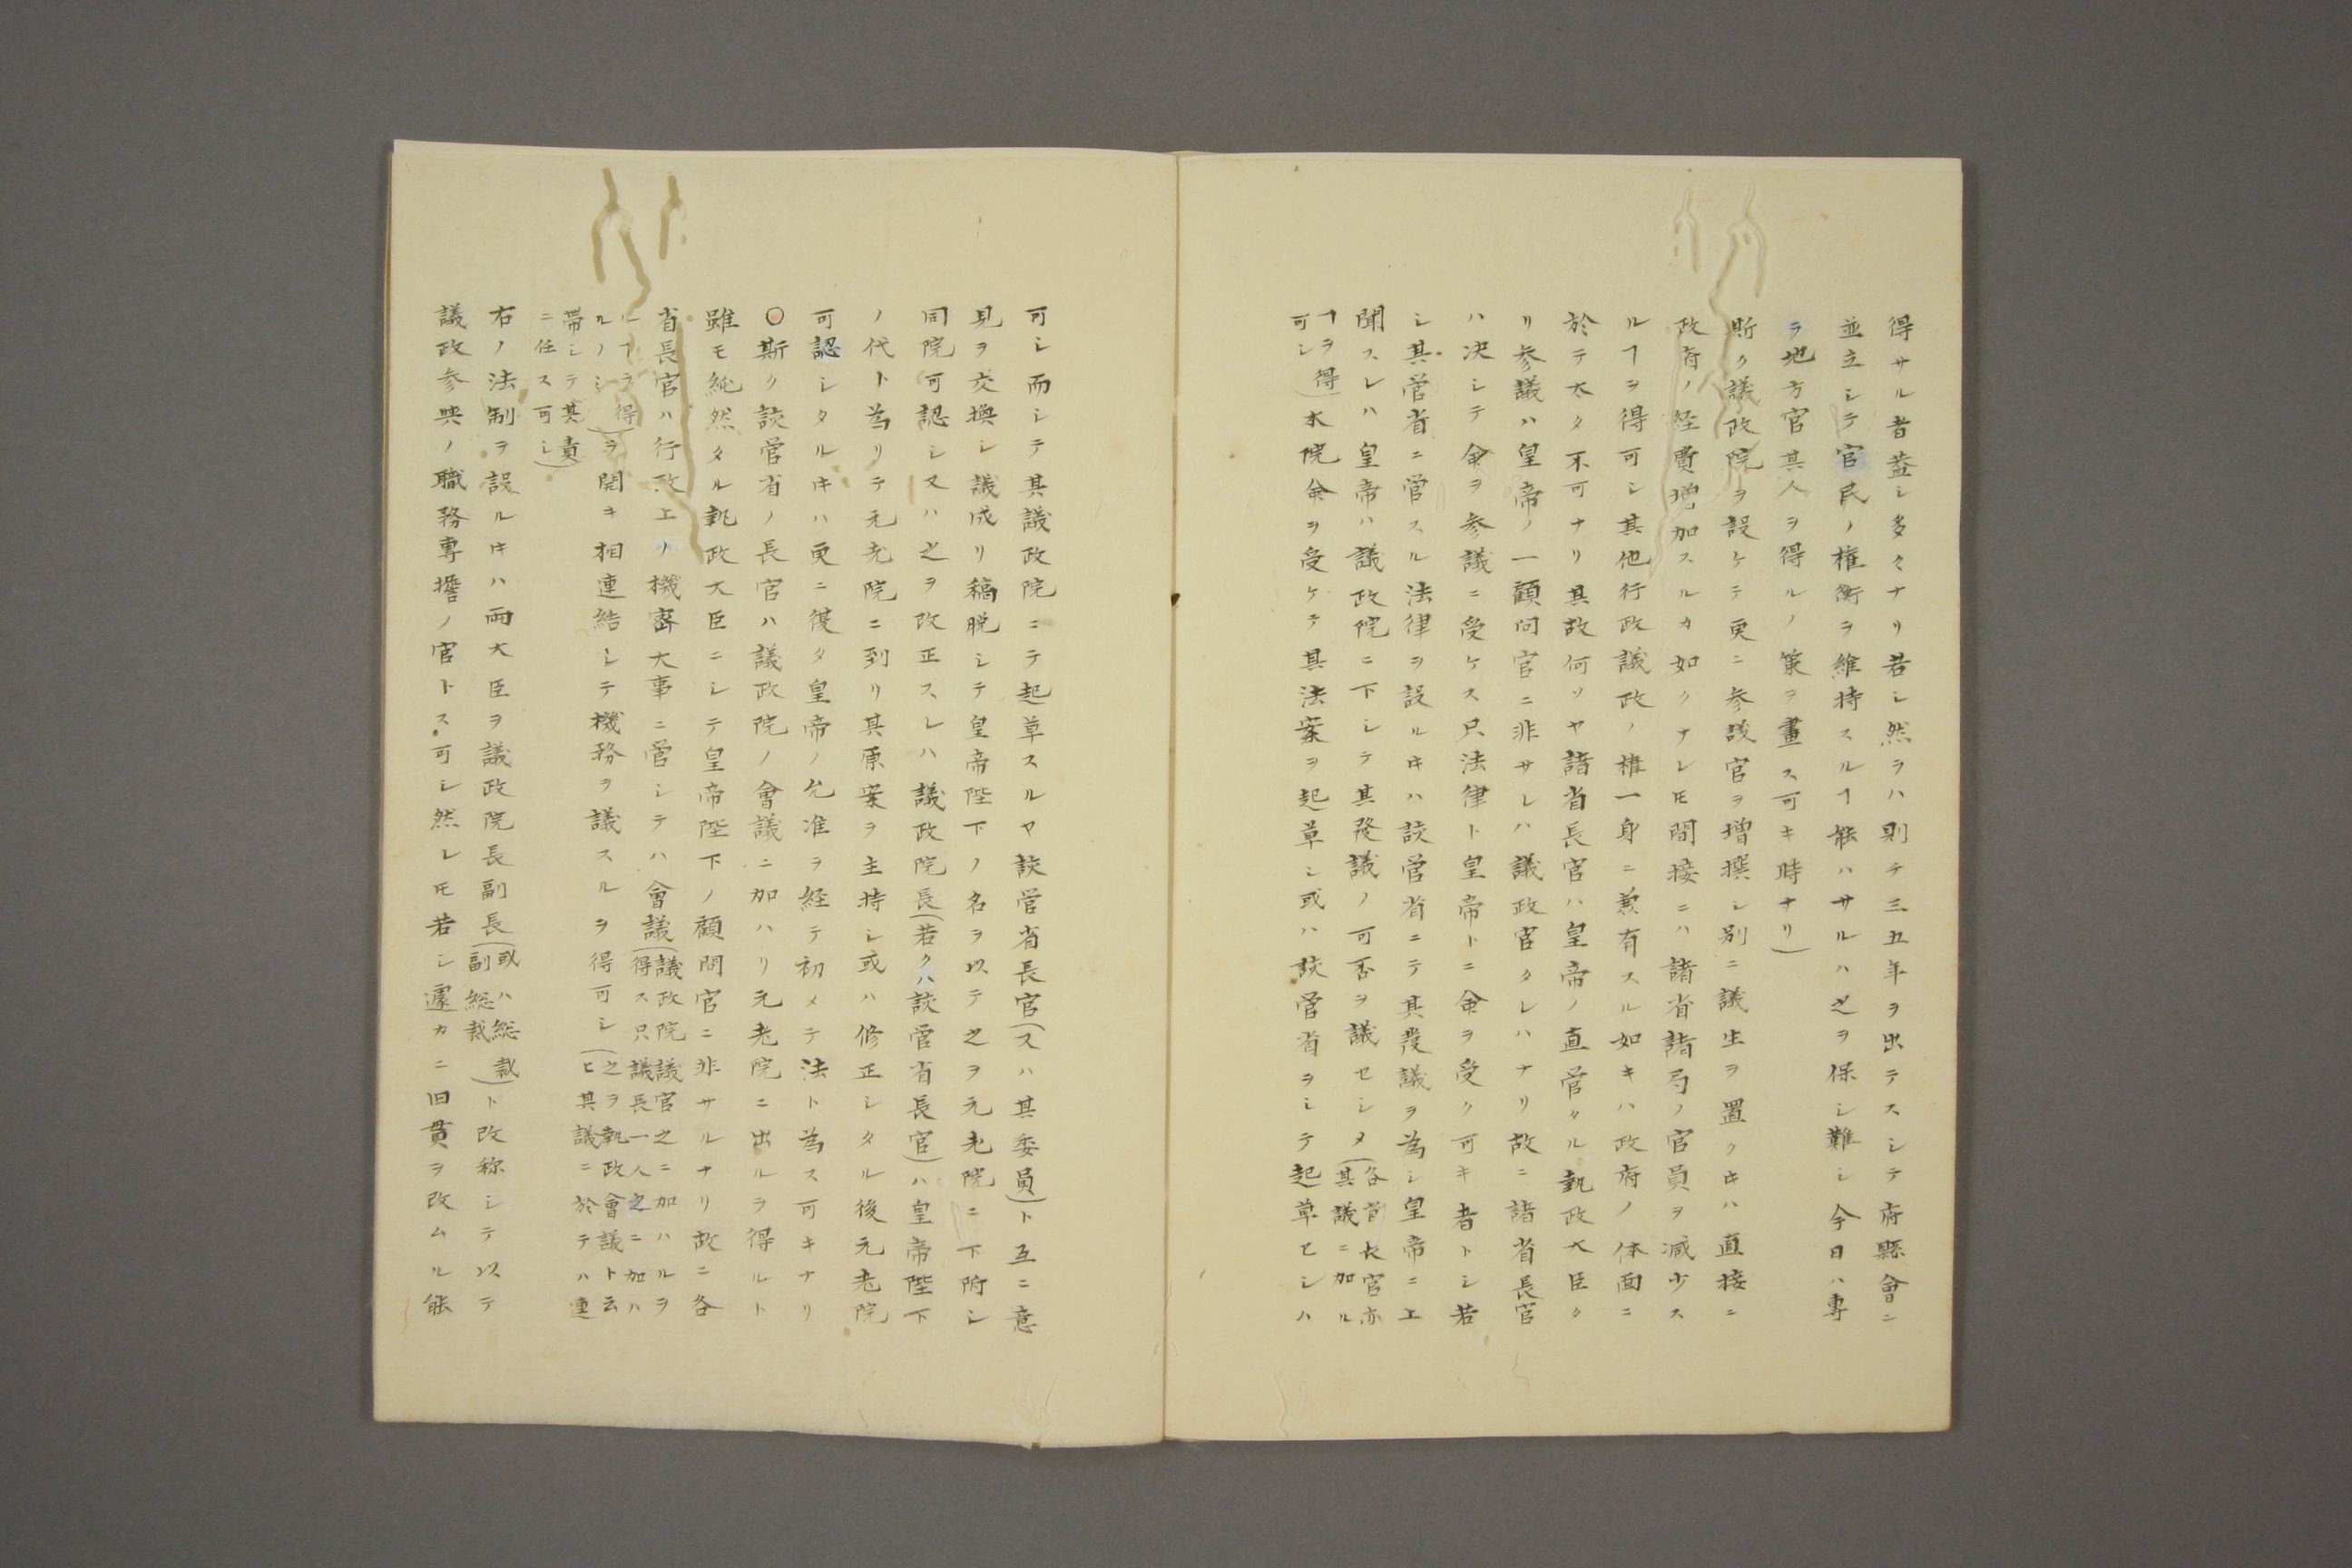 得サル者蓋シ多々ナリ若シ然ラハ則チ三五年ヲ出テスシテ府縣會ニ
並立シテ官民ノ権衡ヲ維持スルヿ能ハサルハ之ヲ保シ難シ今日ハ專
ラ地方官其人ヲ得ルノ策ヲ畫ス可キ時ナリ)
斯ク議政院ヲ設ケテ更ニ参議官ヲ増撰シ別ニ議生ヲ置クㇳキハ直接ニ
政府ノ経費増加スルカ如クナレㇳモ間接ニハ諸省諸局ノ官員ヲ减少ス
ルヿヲ得可シ其他行政議政ノ権一身ニ兼有スル如キハ政府ノ体面ニ
於テ太タ不可ナリ其故何ソヤ諸省長官ハ皇帝ノ直管タル執政大臣タ
リ参議ハ皇帝ノ一顧问官ニ非サレハ議政官タレハナリ故ニ諸省長官
ハ决シテ命ヲ参議ニ受ケス只法律ト皇帝トニ命ヲ受ク可キ者トシ若
シ其管省ニ管スル法律ヲ設ルㇳキハ該管省ニテ其發議ヲ為シ皇帝ニ上
聞スレハ皇帝ハ議政院ニ下シテ其發議ノ可否ヲ議セシメ(各省長官亦
其議ニ加ル
ヿヲ得)
可シ
本院命ヲ受ケテ其法案ヲ起草シ或ハ該管省ヲシテ起草セシハ
可シ而シテ其議政院ニテ起草スルヤ該管省長官(又ハ其委員)ト互ニ意
見ヲ交換シ議成リ稿脱シテ皇帝陛下ノ名ヲ以テ之ヲ元老院ニ下附シ
同院可認シ又ハ之ヲ改正スレハ議政院長(若クハ該管省長官)ハ皇帝陛下
ノ代ト為リテ元老院ニ到リ其原案ヲ主持シ或ハ修正シタル後元老院
可認シタルㇳキハ更ニ復タ皇帝ノ允准ヲ経テ初メテ法ト為ス可キナリ
○斯ク該管省ノ長官ハ議政院ノ會議ニ加ハリ元老院ニ出ルヲ得ルト
雖モ純然タル執政大臣ニシテ皇帝陛下ノ顧問官ニ非サルナリ故ニ各
省長官ハ行政上ノ機密大事ニ管シテハ會議(議政院議官之ニ加ハルヲ
得ス只議長一人之ニ加ハ
ルヿヲ得)
ルノシ
ヲ開キ相連結シテ機務ヲ議スルヲ得可シ(之ヲ執政會議ト云
ヒ其議ニ於テハ連
帶シテ其責
ニ任ス可シ)
右ノ法制ヲ設ルㇳキハ両大臣ヲ議政院長副長(或ハ総裁
副総裁)ト改称シテ以テ
議政参與ノ職務專擔ノ官トス可シ然レㇳモ若シ遽カニ旧貫ヲ改ムル能